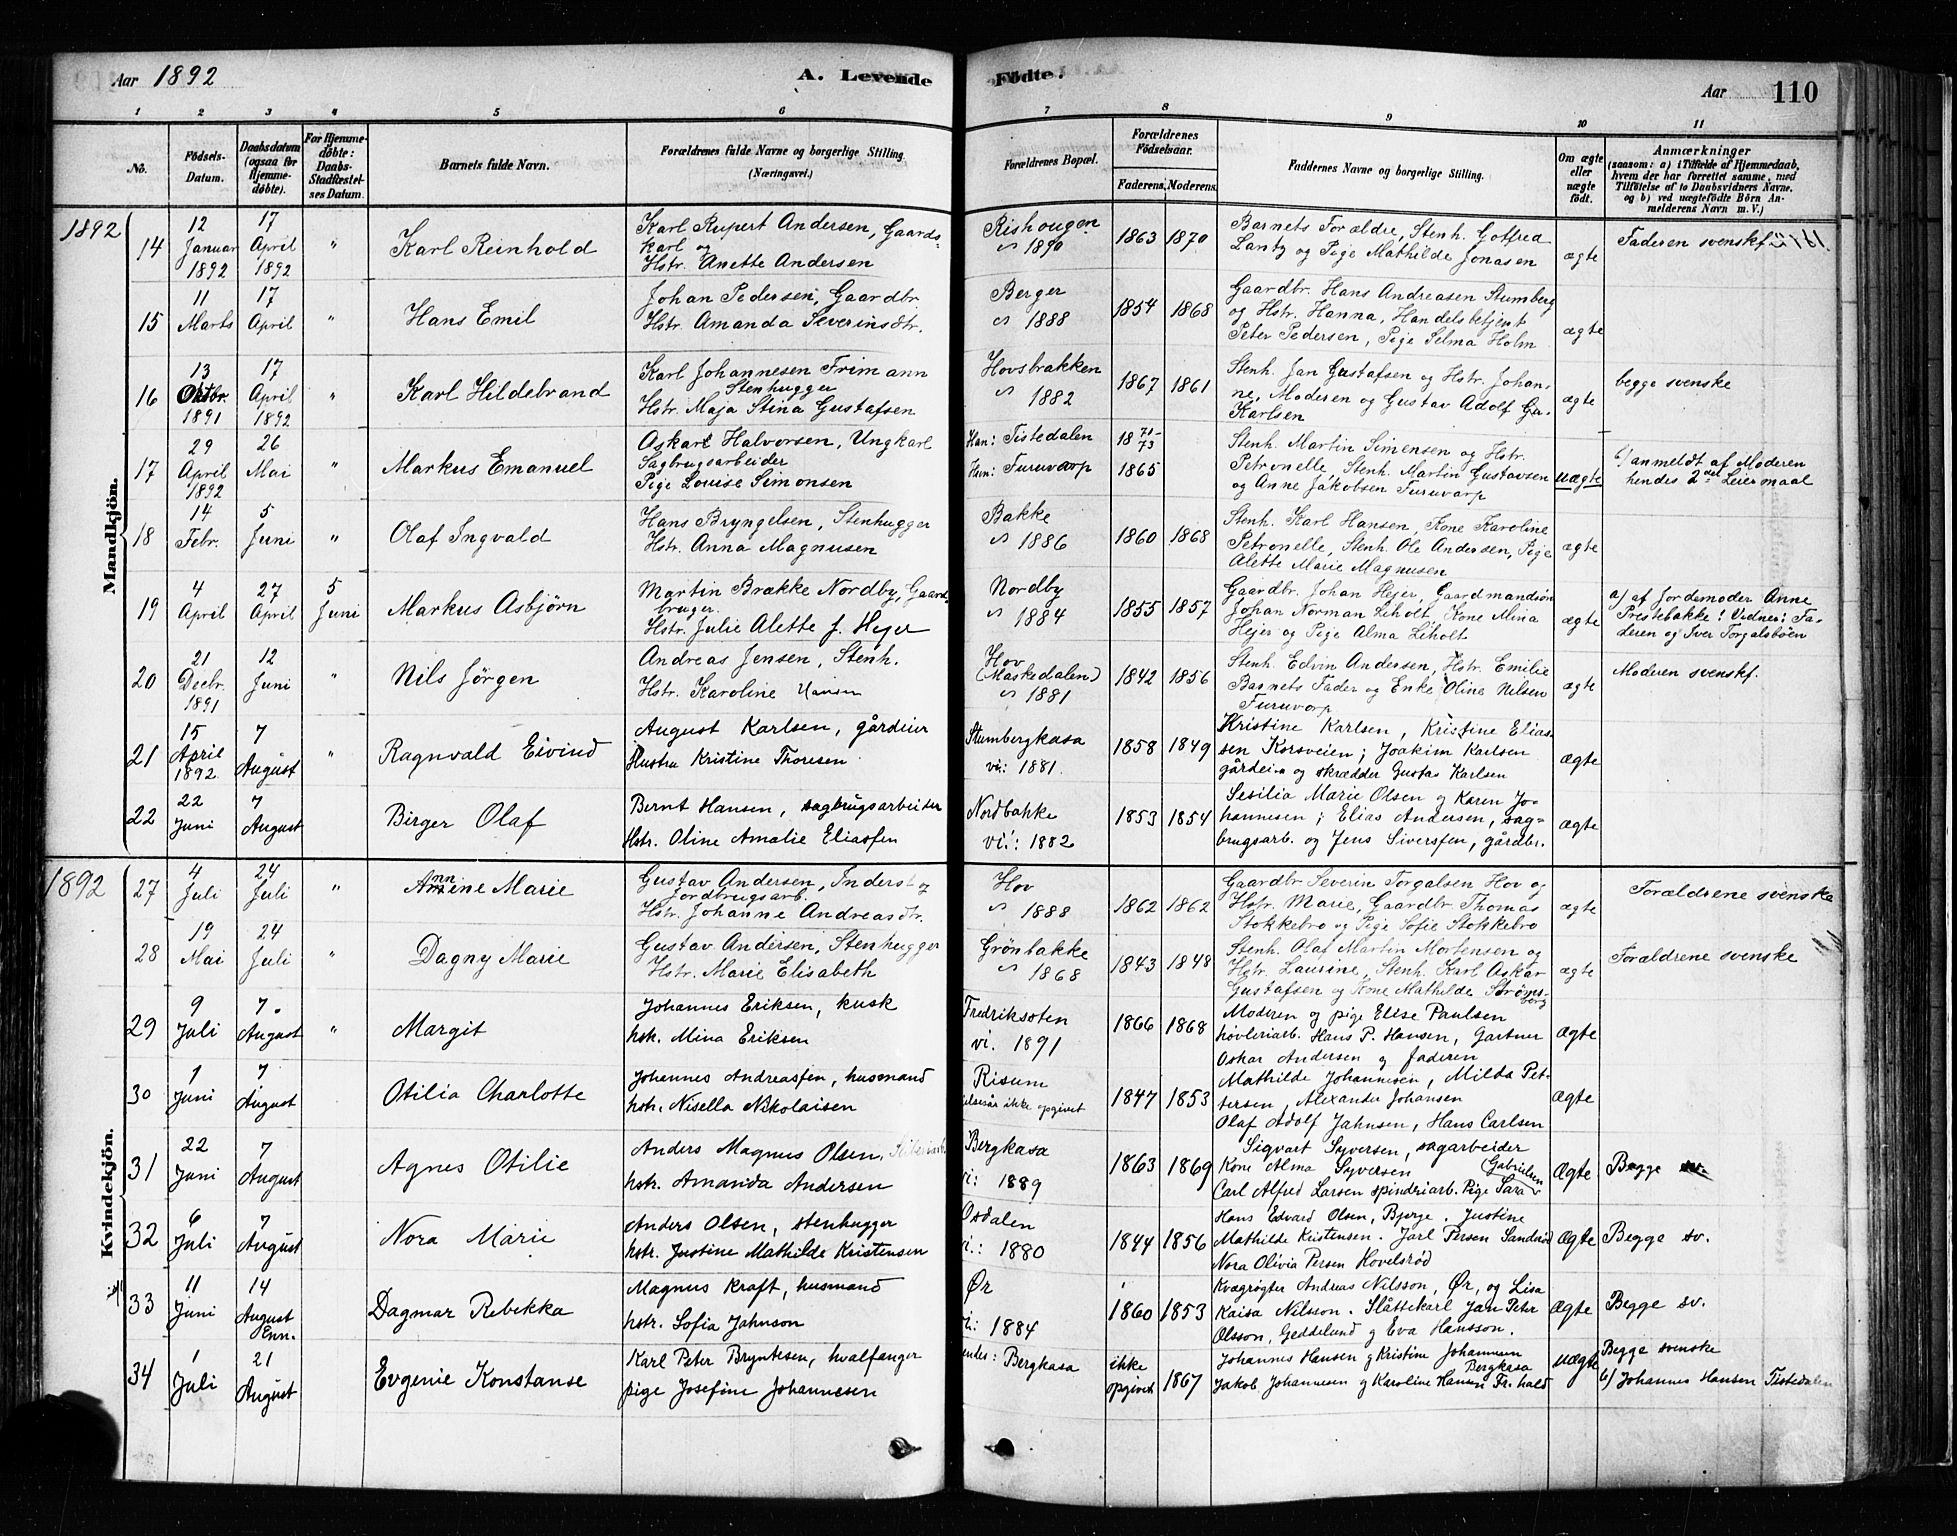 Aar 1892
A. Levende Födte.
Aar 110
1 2 3 4 5 6 7 8 9 10 11
No.
Födsels-Datum.
Daabsdatum (ogsaa for Hjemmedøbte).
For Hjemmedøbte: Daabs-Stadfæstelses Datum.
Barnets fulde Navn.
Forældrenes fulde Navne og borgerlige Stilling. (Næringsvei.)
Forældrenes Bopæl.
Forældrenes Födselsaar.
Faderens. Moderens.
Faddernes Navne og borgerlige Stilling.
Om ægte eller uægte födt.
Anmærkninger
(saasom: a) i Tilfælde af Hjemmedaab, hvem der har forrettet samme, med Tilföielse af to Daabsvidners Navne. og b) ved uægtefödte Börn Anmelderens Navn m. V.)
1892
Mandkjön.
14
12 Januar 1892
17 April 1892
"
Karl Reinhold
Karl Rupert Andersen, Gaards-
karl og
Hstr. Anette Andersen
Rishougen
1890
1863 1870
Barnets Forældre, Stenh. Gotfred
Lantz og Pige Mathilde Jonasen
ægte
Faderen svensk
15
11 Marts
17 April
"
Hans Emil
Johan Pedersen, Gaardbr.
Hstr. Amanda Severinsdtr.
Berger
1888
1854 1868
Gaardbr. Hans Andreasen Stumberg
og Hstr. Hanna, Handelsbetjent
Peter Pedersen, Pige Selma Holm
ægte
16
13 Oktbr. 1891
17 April 1892
"
Karl Hildebrand
Karl Johannesen Frimann
Stenhugger
Hstr. Maja Stina Gustafsen
Hovsbrakken
1882
1867 1861
Stenh. Jan Gustafsen og Hstr. Johan-
ne, Moderen og Gustav Adolf Gu-
Karlsen
ægte
begge svenske
17
29 April 1892
26 Mai
"
Markus Emanuel
Oskar Halvorsen, Ungkarl
Sagbrugsarbeider
Pige Louise Simonsen
Han: Tistedalen
Hun: Furuvarp
18 71-73
1865
Stenh. Martin Simensen og Hstr.
Petronelle, Stenh. Martin Gustavsen
og Anne Jakobsen Furuvarp
uægte
b/ anmeldt af Moderen
hendes 2det Leiermaal
18
14 Febr.
5 Juni
"
Olaf Ingvald
Hans Bryngelsen, Stenhugger
Hstr. Anna Magnusen
Bakke
1886
1860 1868
Stenh. Karl Hansen, Kone Karoline
Petronelle, Stenh. Ole Andersen, Pige
Alette Marie Magnusen
ægte
19
4 April
27 April
5 Juni
Markus Asbjörn
Martin Brække Nordby, Gaard-
bruger.
Hstr. Julie Alette f. Hejer
Nordby
1884
1855 1857
Gaardbr. Johan Hejer, Gaardmandsön
Johan Norman Liholt, Kone Mina
Hejer og Pige Alma Liholt
ægte
a/ af Jordemoder Anne
Prestebakke! Vidner: Fa-
deren og Iver Torgalsböen
20
21 Decbr. 1891
12 Juni
Nils Jörgen
Andreas Jensen, Stenh.
Hstr. Karoline Hansen
Hov
(Maskedalen)
1881
1842 1856
Stenh. Edvin Andersen, Hstr. Emilie
Barnets Fader og Enke Oline Nilsen
Furuvarp
ægte
Moderen svensk.
21
15 April 1892
7 August
"
Ragnvald Eivind
August Karlsen, gårdeier
Hustru Kristine Thoresen
Stumbergkasa
vi: 1881.
1858 1849
Kristine Karlsen, Kristine Elias-
sen Korsveien; Joakim Karlsen
gårdeier og skrædder Gustav Karlsen
ægte
22
22 Juni
7 August
Birger Olaf
Bernt Hansen, sagbrugsarbeider
Hstr. Oline Amalie Eliassen
Nordbakke
vi: 1882
1853 1854
Sesilia Marie Olsen og Karen Jo-
hannesen; Elias Andersen, sag-
brugsarb. og Jens Siversen, gårdbr.
ægte
1892
Kvindekjön.
27
4 Juli
24 Juli
"
Annine Marie
Gustav Andersen, Inderst og
Jordbrugsarb.
Hstr. Johanne Andreasdtr.
Hov
1888
1862 1862
Gaardbr Severin Torgalsen Hov og
Hstr. Marie, Gaardbr. Thomas
Stokkebro og Pige Sofie Stokkebro
ægte
Forældrene svenske
28
19 Mai
24 Juli
"
Dagny Marie
Gustav Andersen, Stenhugger
Hstr. Marie Elisabeth
Grönbakke
1868
1843 1848
Stenh. Olaf Martin Mortensen og
Hstr. Laurine, Stenh. Karl Oskar
Gustafsen og Kone Mathilde Ströms-
berg
ægte
Forældrene svenske
29
9 Juli
7. August
"
Margit
Johannes Eriksen, kusk
hstr. Mina Eriksen
Fredriksten
vi. 1891
1866 1868
Moderen og pige Elise Paulsen
hövleriarb. Hans P. Hansen, Gartner
Oskar Andersen og faderen
Ægte
30
1 Juni
7 August
Otilia Charlotte
Johannes Andreassen, husmand
hstr. Nisella Nikolaisen
Risum
ikke opgivet
1847 1853
Mathilde Johannesen, Milda Pet-
tersen, Alexander Johansen
Olaf Adolf Jahnsen, Hans Carlsen
Ægte
31
22 Juni
7 August
Agnes Otilie
Anders Magnus Olsen,
hstr. Amanda Andersen
Bergkasa
vi: 1889
1863 1869
Sigvart Syversen, sagarbeider
Kone Alma Syversen (Gabrielsen
Carl Alfred Larsen spinderiarb. Pige Sara
Ægte
Begge sv.
32
6 Juli
7 August
Nora Marie
Anders Olsen, stenhugger
hstr. Justine Mathilde Kristensen
Osdalen
vi.: 1880
1844 1856
Hans Edvard Olsen, Bjerge. Justine
Mathilde Kristensen. Jarl Persen Sandröd
Nora Olivia Persen Hovelsröd
Ægte
Begge sv.
33
11 Juni
14 August
Enn.
Dagmar Rebekka
Magnus Kraft, husmand
hstr. Sofia Jahnson
Ør
vi: 1884
1860 1853
Kvægrögter Andreas Nilsson, Ør, og Lisa
Kaisa Nilsson. Slåttekarl Jan Peter
Olsson, Geddelund og Eva Hansson.
Ægte
Begge sv.
34
1 Juli
21 August
Evgenie Konstanse
Karl Peter Bryntesen, hvalfanger
pige Josefine Johannesen
Bergkasa
ikke opgivet 1867
Johannes Hansen og Kristine Johannesen
Bergkasa
Jakob Johannesen og Karoline Hansen Fr.hald
uægte
Begge svenske
b/ Johannes Hansen Tistedalen